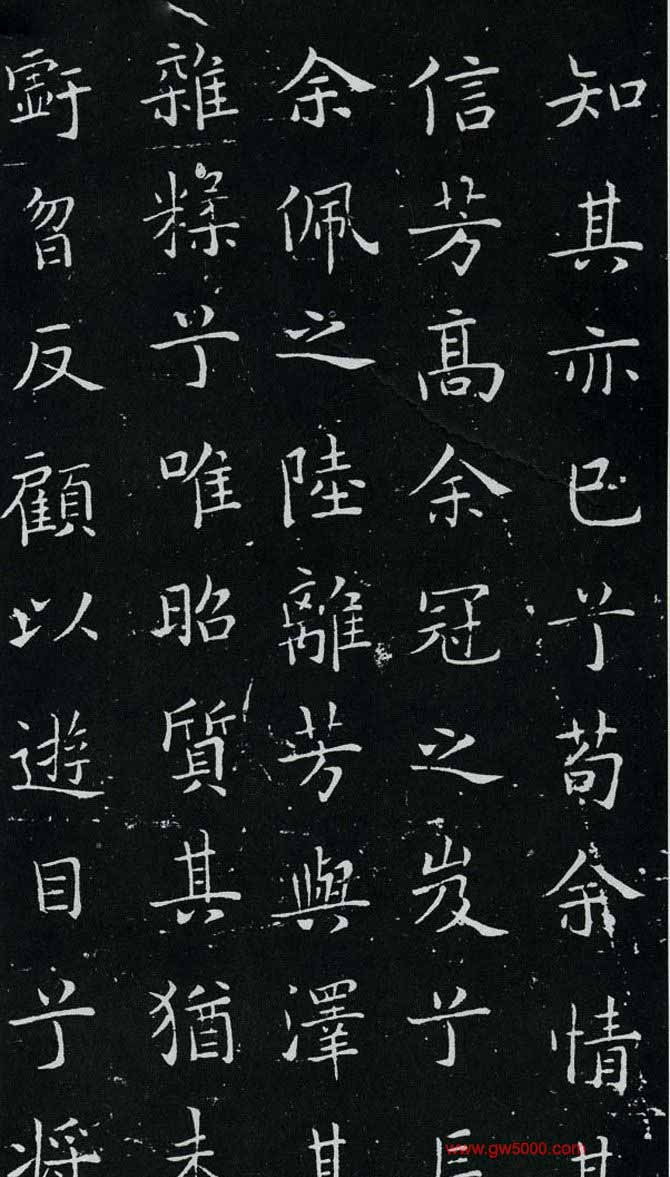 知其亦已兮苟余情其
信芳髙余冠之岌兮長
余佩之陸離芳與澤其
雜糅兮唯昭質其猶未
虧曶反顧以遊目兮將
www.gw5000.com